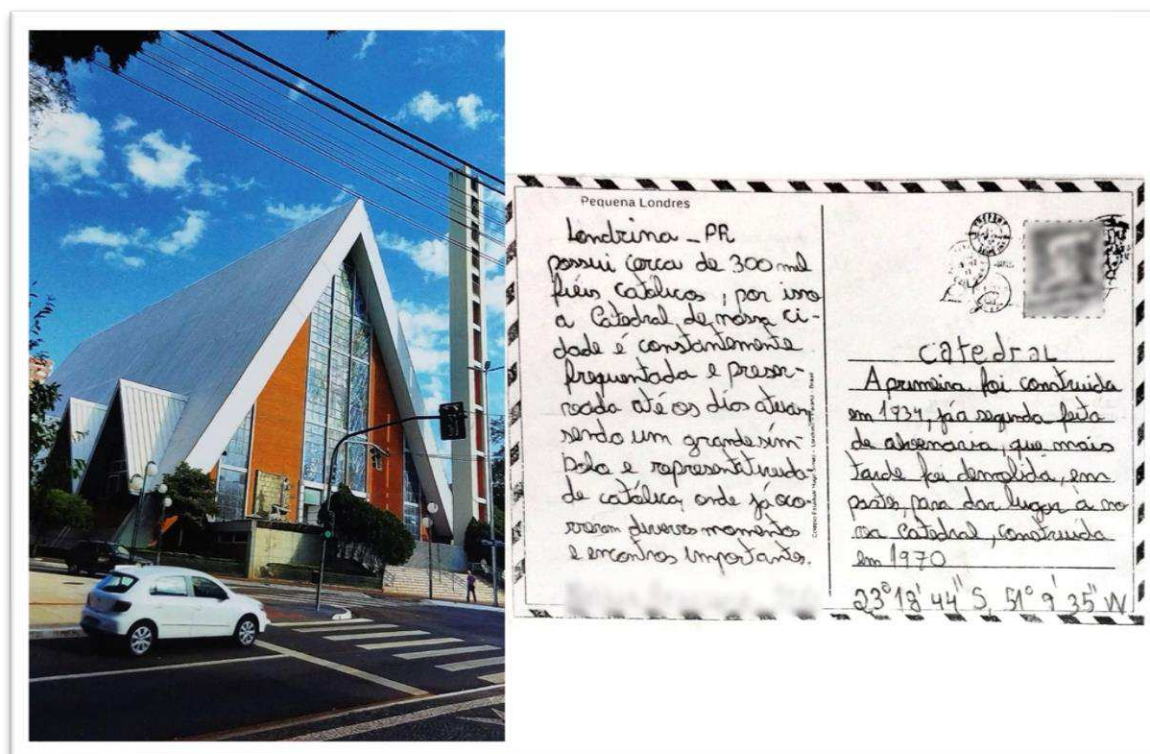 Pequena Londres
Londrina - PR
possui cerca de 300 mil
fiéis católicos, por isso
a Catedral de nossa ci-
dade é constantemente
frequentada e preser-
vada até os dias atuais
sendo um grande sím-
bolo e
de católica, onde já oco-
rreram diversos momentos
e encontros importantes.
catedral
A primeira foi construída
em 1934, já a segunda feita
de alvenaria, que mais
tarde foi demolida, em
parte, para dar lugar à no
va Catedral, construída
em 1970
23° 18' 44" S, 51° 9' 35" W